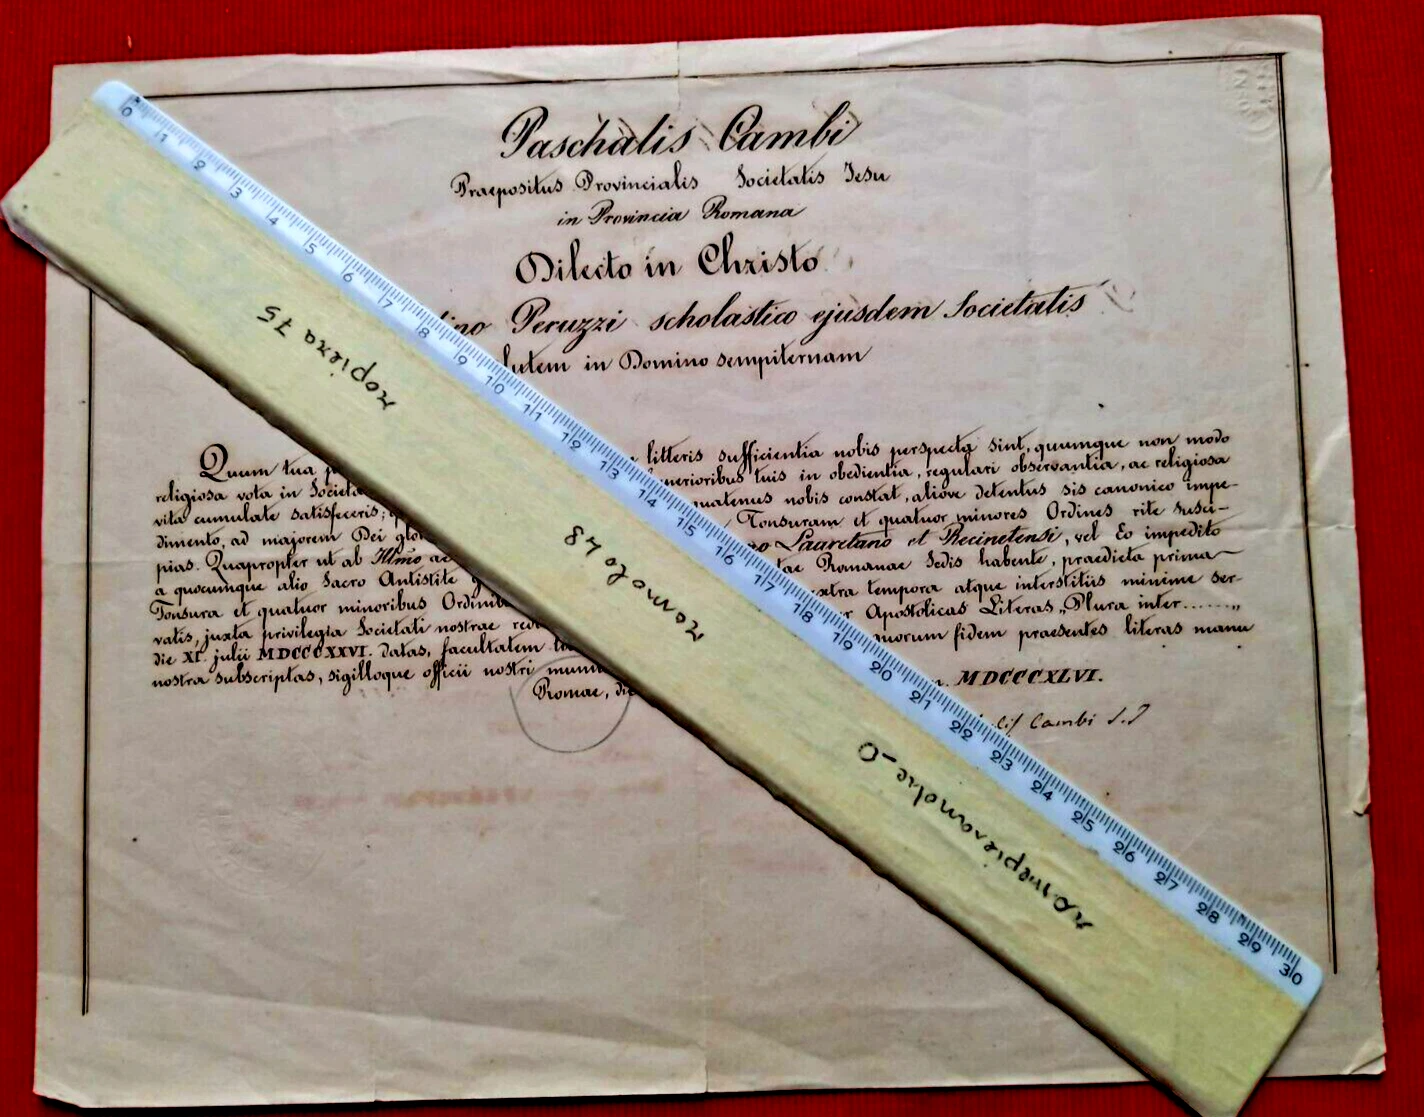 Paschalis Cambi
Praepositus Provincialis Societatis Jesu
in Provincia Romana
Dilecto in Christo
Peruzzi scholastico ejusdem Societatis
lutem in Domino sempiternam
Quum tua litteris sufficientia nobis perspecta sint, quumque non modo
religiosa vota in Societa perioribus tuis in obedientia, regulari observantia, ac religiosa
vita cumulate satisfeceris; quatenus nobis constat, aliove detentus sis canonico impe-
dimento, ad majorem Dei glo Tonsuram et quatuor minores Ordines rite susci-
pias. Quapropter ut ab Illmo ac Lauretano et Recinetensi, vel Eo impedito
a quocumque alio Sacro Antistite tae Romanae Sedis habente, praedicta prima
Tonsura et quatuor minoribus Ordinib extra tempora atque interstitiis minime ser-
vatis, juxta privilegia Societati nostrae r Apostolicas Literas „Plura inter......„
die XI. julii MDCCCXXVI. datas, facultatem quorum fidem praesentes literas manu
nostra subscriptas, sigilloque officii nostri muni
Romae, die MDCCCXLVI.
Cambi S.J
0 1 2 3 4 5 6 7 8 9 10 11 12 13 14 15 16 17 18 19 20 21 22 23 24 25 26 27 28 29 30
75
48